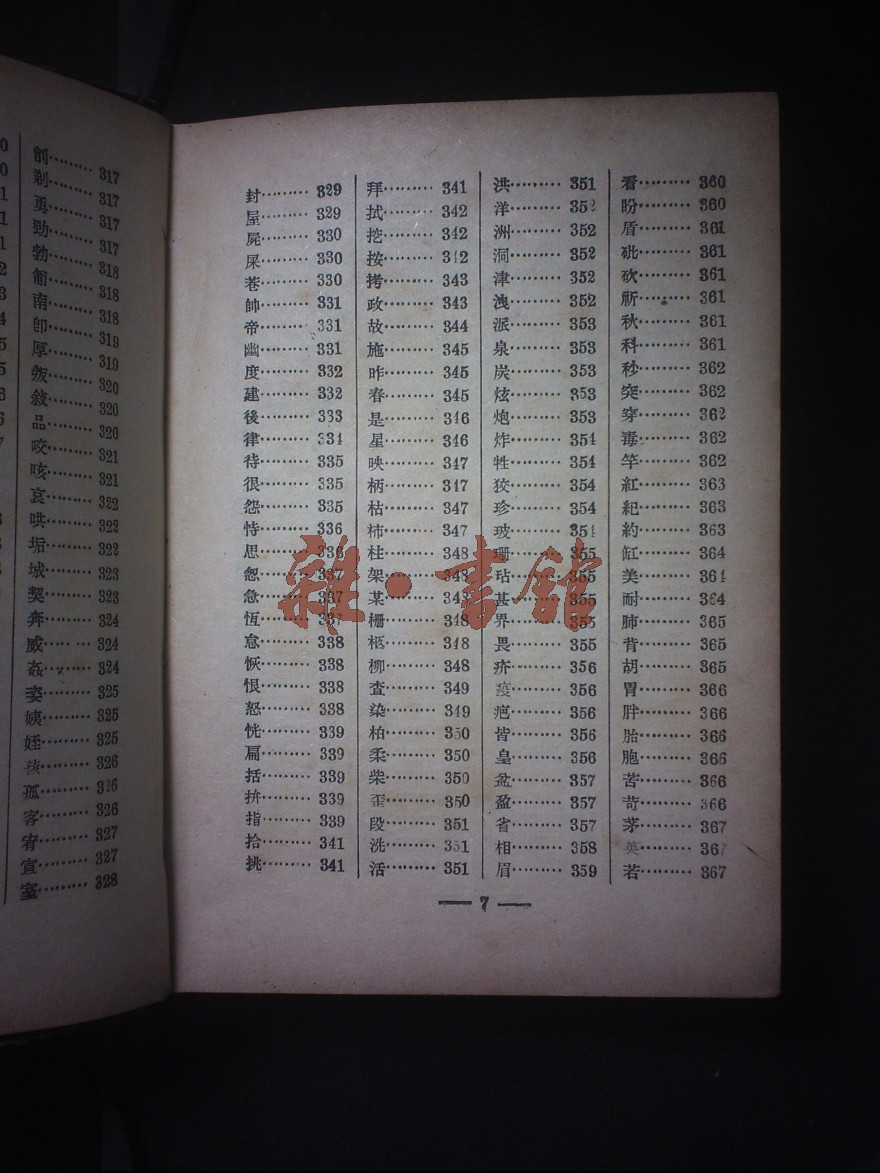 削………317
剃………317
勇………317
勁………317
勃………318
匍………318
南………318
卽………319
厚………319
叛………320
敍………320
品………320
咬………321
咳………321
哀………322
哄………322
垢………322
城………323
契………323
奔………324
威………324
姦………324
姿………325
姨………325
姪………325
孩………326
孤………326
客………326
宥………327
宣………327
室………328
封………329
屋………329
屍………330
屎………330
巷………330
帥………331
帝………331
幽………331
度………332
建………332
後………333
律………334
待………335
很………335
怨………335
恃………336
思………336
怱………337
急………337
恆………337
怠………338
恢………338
恨………338
怒………338
恍………339
扁………339
括………339
拚………339
指………339
拾………341
挑………341
拜………341
拭………342
挖………342
按………342
拷………343
政………343
故………344
施………345
昨………345
春………345
是………346
星………346
映………347
柄………347
枯………347
柿………347
柱………348
架………348
某………348
柵………348
柩………348
柳………348
查………349
染………349
柏………350
柔………350
柴………350
歪………350
段………351
洗………351
活………351
洪………351
洋………352
洲………352
洞………352
津………352
洩………352
派………353
泉………353
炭………353
炫………353
炮………353
炸………354
牲………354
狡………354
珍………354
玻………354
珊………355
玷………355
甚………355
界………355
畏………355
疥………356
疫………356
疤………356
皆………356
皇………356
盆………357
盈………357
省………357
相………358
眉………359
看………360
盼………360
盾………361
砒………361
砍………361
祈………361
秋………361
科………361
秒………362
突………362
穿………362
毒………362
竿………362
紅………363
紀………363
約………363
缸………364
美………364
耐………364
肺………365
背………365
胡………365
胃………366
胖………366
胎………366
胞………366
苦………366
苛………366
茅………367
英………367
若………367
— 7 —
雜·書館